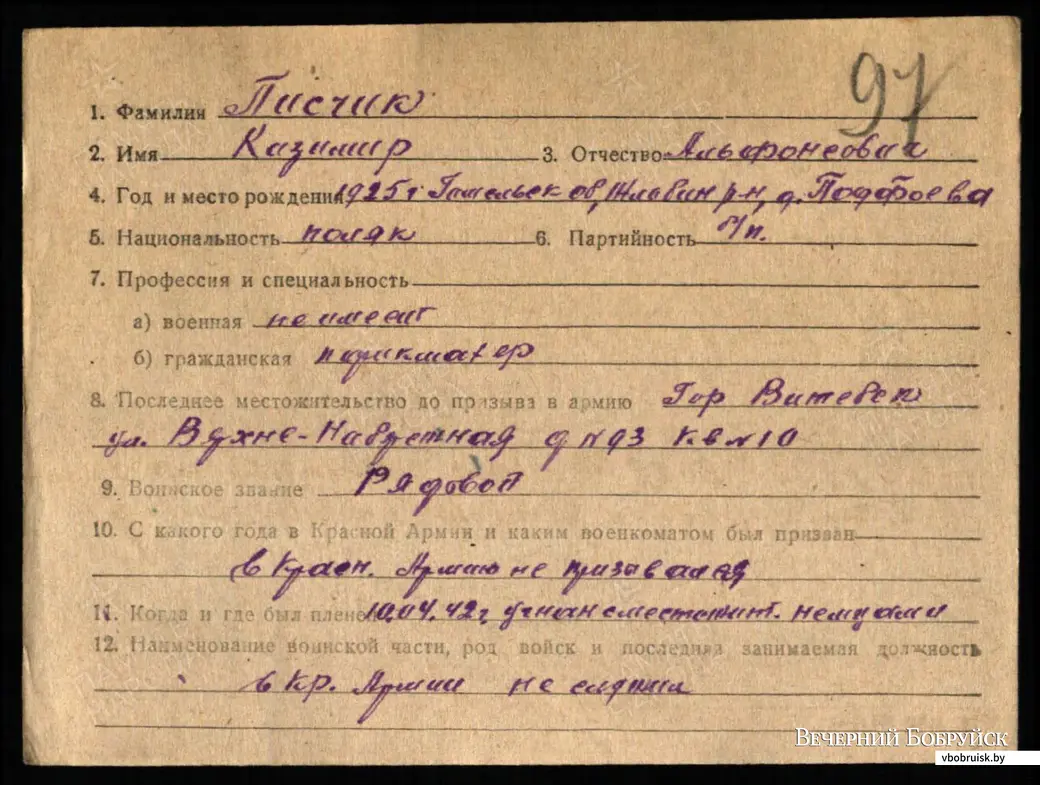 97
1. Фамилия Писчик
2. Имя Казимир 3. Отчество Альфонсович
4. Год и место рождения 1925 г Гомельск об, Жлобин р-н, д.
5. Национальность поляк 6. Партийность б/п.
7. Профессия и специальность
а) военная не имеет
б) гражданская парикмахер
8. Последнее местожительство до призыва в армию Гор Витебск
ул. д № 93 кв № 10
9. Воинское звание Рядовой
10. С какого года в Красной Армии и каким военкоматом был призван
в Красн. Армию не призывался
11. Когда и где был пленен 10.04.42 г. угнан с местожит. немцами
12. Наименование воинской части, род войск и последняя занимаемая должность
в Кр. Армии не служил
Вечерний Бобруйск
vbobruisk.by